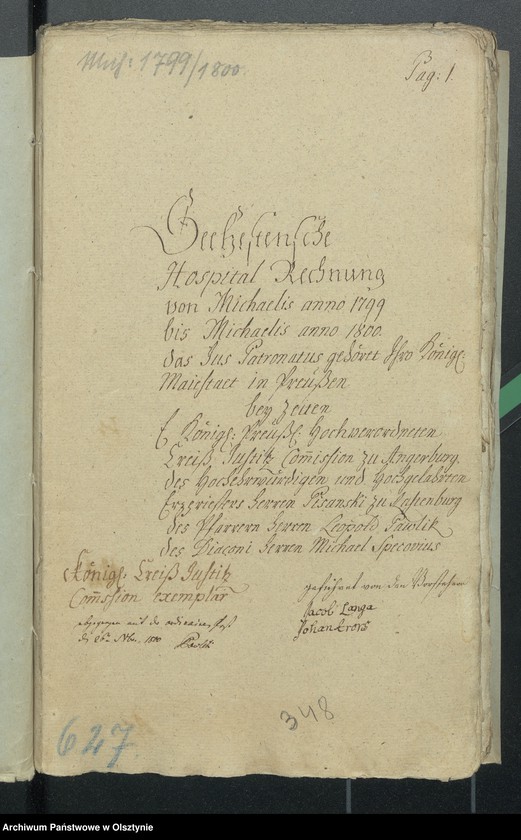 Mich: 1799/1800
Pag: 1.
Seehestensche
Hospital Rechnung
von Michaelis anno 1799
bis Michaelis anno 1800.
das Jus Patronatus gehöret Ihro Königl:
Maiestaet in Preußen
bey Zeiten
E Königl: Preußl: Hochverordneten
Creiß Justitz Com̅ission zu Angerburg
des Hochehrwürdigen und Hochgelahrten
Erzpriesters Herren Pisanski zu Rastenburg
des Pfarrern Herren Leopold Pawlik
des Diaconi Herren Michael Specovius
Königl: Creiß Justitz
Com̅ssion exemplar
abgegangen mit der ordinairen Post
1800 Pawlik
geführet von den Vorstehern
Jacob Langa
Johan
348
627
Archiwum Państwowe w Olsztynie